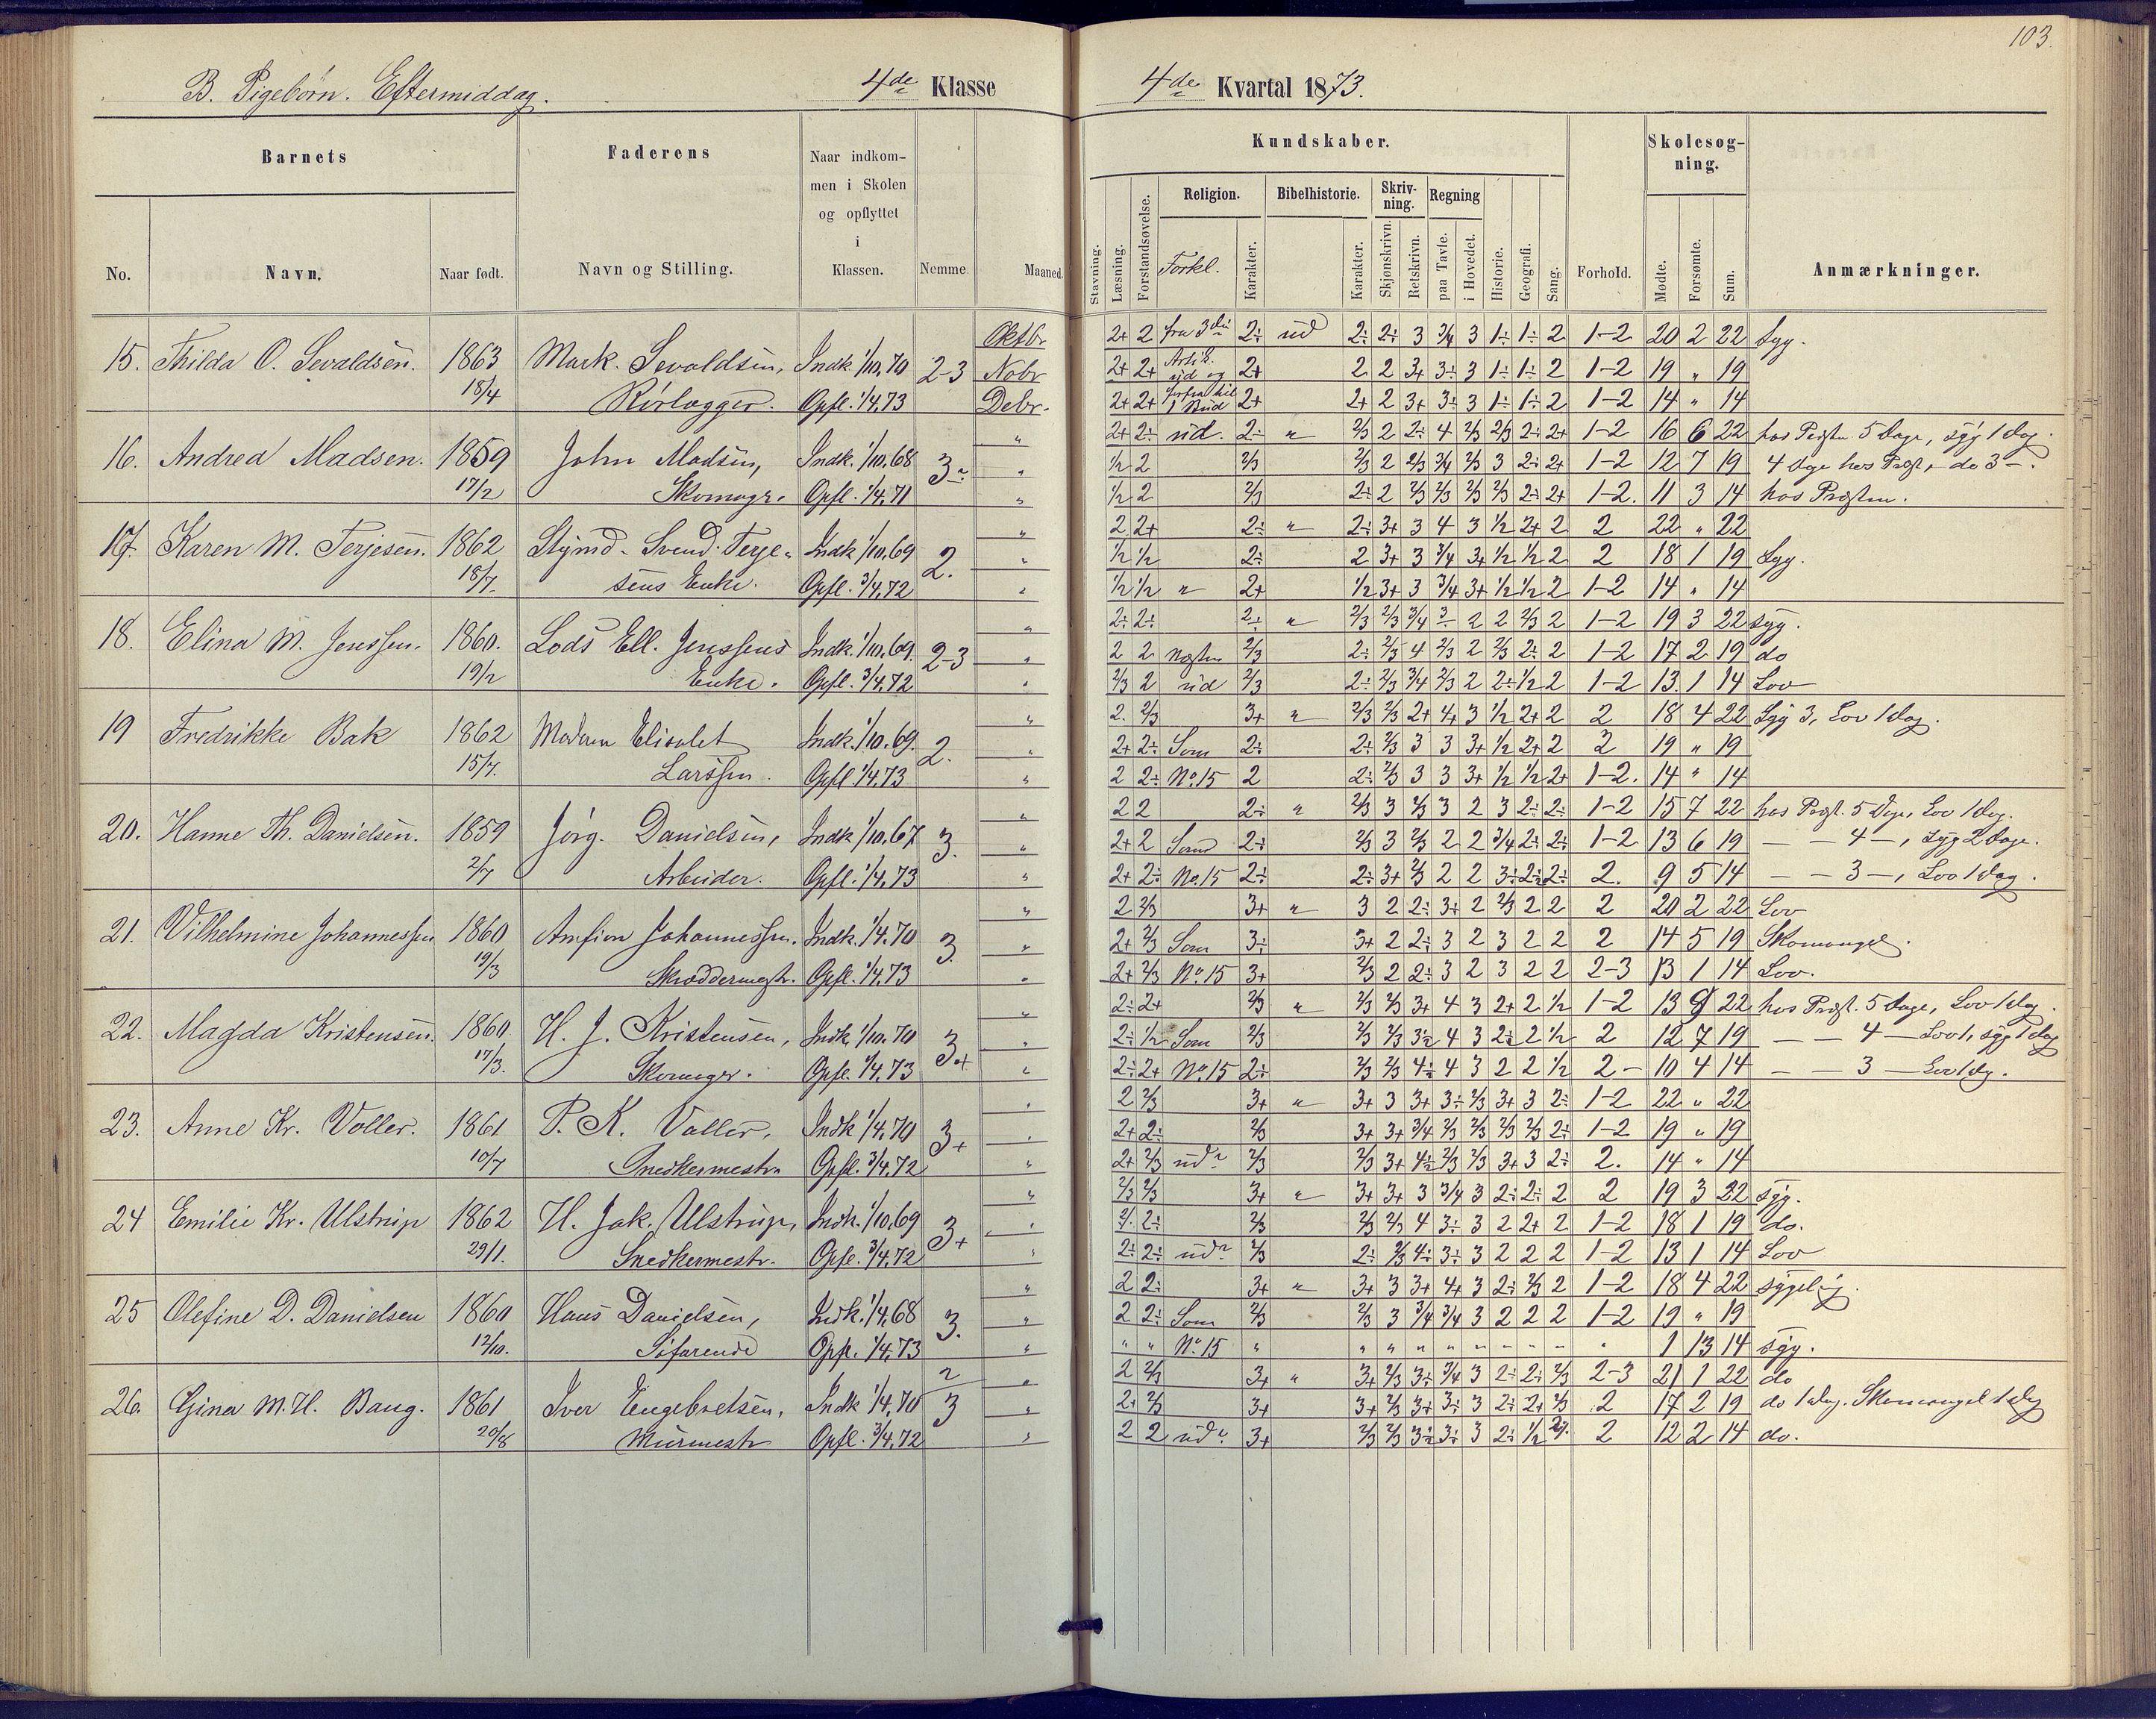 103.
B. Pigebørn. Eftermiddag. 4de Klasse
4de Kvartal 1873.
Barnets Faderens Naar indkommen i Skolen og opflyttet i Klassen. Nemme. Maaned.
No. Navn. Naar født. Navn og Stilling.
Kundskaber. Forhold. Skolesøgning. Anmærkninger.
Stavning. Læsning. Forstandsøvelse. Religion. Forkl. Karakter. Bibelhistorie. Karakter. Skrivning. Skjønskrivn. Retskrivn. Regning paa Tavle. i Hovedet. Historie. Geografi. Sang. Mødte. Forsømte. Sum.
15. Thilda O. Sevaldsen. 1863 Mark. Sevaldsen, Indk. 1/10.70 2-3 Oktbr
18/4 Rørlægger. Opfl. 1/4.73 Nobr
Debr.
2+ 2 fra 3die 2÷ ud 2÷ 2÷ 3 3/4 3 1÷ 1÷ 2 1-2 20 2 22 Syg.
2+ 2+ Artik. ud og 2+ 2 2 3+ 3÷ 3 1÷ 1÷ 2 1-2 19 " 19
2+ 2+ 1 Bud 2+ 2+ 2 3+ 3÷ 3 1÷ 1÷ 2 1-2 14 " 14
16. Andrea Madsen. 1859 John Madsen, Indk. 1/10.68 3÷ "
17/2 Skomagr. Opfl. 1/4.71 "
2+ 2÷ ud. 2÷ " 2/3 2 2÷ 4 2/3 2/3 2÷ 2+ 1-2 16 6 22 hos Præstn. 5 Dage, syg 1 Dag.
1/2 2 2/3 2/3 2 2/3 3/4 2/3 3 2÷ 2+ 1-2 12 7 19 4 Dge hos Præst, do 3 -.
1/2 2 2/3 2÷ 2 2/3 2/3 2/3 2/3 2÷ 2+ 1-2. 11 3 14 hos Præsten.
17. Karen M. Terjesen. 1862 Styrmd. Svend Terje- Indk 1/10.69 2. "
18/7. sens Enke. Opfl. 3/4.72 "
2 2+ 2÷ " 2÷ 3+ 3 4 3 1/2 2+ 2 2 22 " 22
1/2 1/2 2÷ 2 3+ 3 3/4 3+ 1/2 1/2 2 2 18 1 19 Syg.
1/2 1/2 " 2+ 1/2 3+ 3 3/4 3+ 1/2 1/2 2 1-2 14 " 14
18. Elina M. Jenssen. 1860. Lods Ell. Jenssens Indk. 1/10.69. 2-3 "
19/2 Enke. Opfl. 3/4.72 "
2÷ 2÷ 2÷ " 2/3 2/3 3/4 3÷ 2 2 2/3 2 1-2 19 3 22 syg.
2 2 næsten 2/3 2÷ 2/3 4 2/3 2 2/3 2÷ 2 1-2 17 2 19 do
2/3 2 ud 2/3 2÷ 2/3 3/4 2/3 2 2÷ 1/2 2 1-2 13. 1 14 Lov
19 Fredrikke Bak 1862 Madam Elisabet Indk. 1/10.69. 2. "
15/7. Larssen. Opfl 1/4.73 "
2. 2/3 3+ " 2/3 2/3 2+ 4+ 3 1/2 2+ 2 2 18 4 22 Syg 3, Lov 1 dag.
2+ 2÷ Som 2÷ 2÷ 2/3 3 3 3+ 1/2 2+ 2 2 19 " 19
2 2÷ No. 15 2 2÷ 2/3 3 3 3+ 1/2 1/2 2+ 1-2. 14 " 14
20. Hanne Th. Danielsen. 1859 Jørg. Danielsen, Indk 1/10.67 3. "
2/7 Arbeider. Opfl. 1/4.73 "
2 2 2÷ " 2/3 3 2/3 3 2 3 2÷ 2÷ 1-2 15 7 22 hos Præst. 5 Dge, Lov 1 Dag.
2+ 2 Som 2÷ 2/3 3 2/3 2 2 3/4 2÷ 2÷ 1-2 13 6 19 - - 4 -, syg 2 Dage.
2+ 2÷ No. 15 2÷ 2÷ 3+ 2/3 2 2 3÷ 2÷ 2÷ 2. 9 5 14 - - 3 -, Lov 1 Dag.
21. Vilhelmine Johannessen 1860 Amfion Johannessen. Indk. 1/4.70 3. "
19/3 Skræddermestr. Opfl. 1/4.73 "
2 2/3 3+ " 3 2 2÷ 3+ 2 2/3 2 2 2 20 2 22 Lov
2+ 2/3 Som 3÷ 3+ 2 2÷ 3 2 3 2 2 2 14 5 19 Skomangel.
2+ 2/3 No. 15 3+ 2/3 2 2÷ 3 2 3 2 2 2-3 13 1 14 Lov.
22. Magda Kristensen. 1860 H. J. Kristensen, Indk 1/10.70 3+ "
17/3. Skomagr. Opfl. 1/4.73 "
2÷ 2+ 2/3 " 2/3 2/3 3+ 4 3 2+ 2 1/2 1-2 13 9 22 hos Præst. 5 Dage, Lov 1 dag.
2÷ 1/2 Som 2/3 2/3 2/3 3÷ 4 3 2÷ 2 1/2 2 12 7 19 - - 4 - Lov 1, syg 1 dag
2÷ 2+ No. 15 2÷ 2/3 2/3 4÷ 4 3 2 2 1/2 2 - 10 4 14 - - 3 - Lov 1 Dg.
23. Anne Kr. Voller. 1861 P. K. Voller, Indk 1/4.70 3+ "
10/7 Snedkermestr. Opfl. 3/4.72 "
2 2/3 3+ " 3+ 3 3+ 3÷ 2/3 3+ 3 2÷ 1-2 22 " 22
2+ 2÷ 2/3 3+ 3+ 3/4 2/3 2/3 2/3 2/3 2÷ 1-2 19 " 19
2+ 2/3 ud 2/3 2/3 3+ 4÷ 2/3 2/3 3+ 3 2÷ 2. 14 " 14
24 Emilie Kr. Ulstrup 1862 H. Jak. Ulstrup, Indk. 1/10.69 3+ "
29/1. Snedkermestr. Opfl. 3/4.72 "
2/3 2/3 3+ " 3+ 3+ 3 3/4 3 2÷ 2÷ 2 2 19 3 22 syg.
2. 2÷ 2/3 2/3 2/3 4 3÷ 3 2 2+ 2 1-2 18 1 19 do.
2÷ 2÷ ud 2/3 2÷ 2/3 4÷ 3÷ 3 2 2 2 1-2 13 1 14 Lov
25 Olefine D. Danielsen 1860 Hans Danielsen, Indk. 1/4.68 3. "
12/10. Søfarende Opfl. 1/4.73 "
2 2÷ 3+ " 3+ 3 3+ 4+ 3 2÷ 2/3 2 1-2 18 4 22 sygelig.
2 2÷ Som 2/3 2/3 3 3/4 3/4 3 2 2 2 1-2 19 " 19
" " No. 15 " " " " " " " " " " 1 13 14 syg.
26. Gina M. H. Baug. 1861 Iver Engebretsen, Indk 1/4.70 2/3 "
20/8 Murmestr Opfl. 3/4.72 "
2 2/3 3+ " 3+ 2/3 3÷ 3/4 3 2÷ 2÷ 2/3 2-3 21 1 22 do
2+ 2/3 3+ 3+ 2/3 3+ 3÷ 3 2÷ 2+ 2/3 2 17 2 19 do 1 dag. Skomangel 1 dag
2 2 ud 3+ 2/3 2/3 3÷ 3÷ 3 2÷ 1/2 2 12 2 14 do.